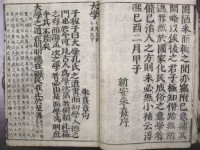 因固陋采而輯之間亦竊附己意補
其闕略以俟後之君子極知僭踰無所
逃罪然於國家化民成俗之意學者
脩己治人之方則未必無小補云淳
熙己酉二月甲子
新安朱熹序
大學
朱熹章句
子程子曰大學孔氏之遺書而初學入德之
門也於今可見古人為學次第者獨賴此篇
之存而論孟次之學者必由是而學焉則
庶乎其不差矣
大學之道在明明德在親民在止於至善